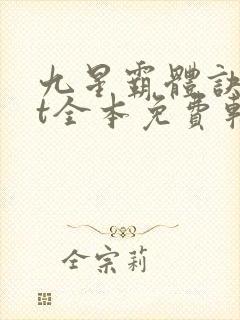 九星霸體訣
t全本免費
仝宗莉